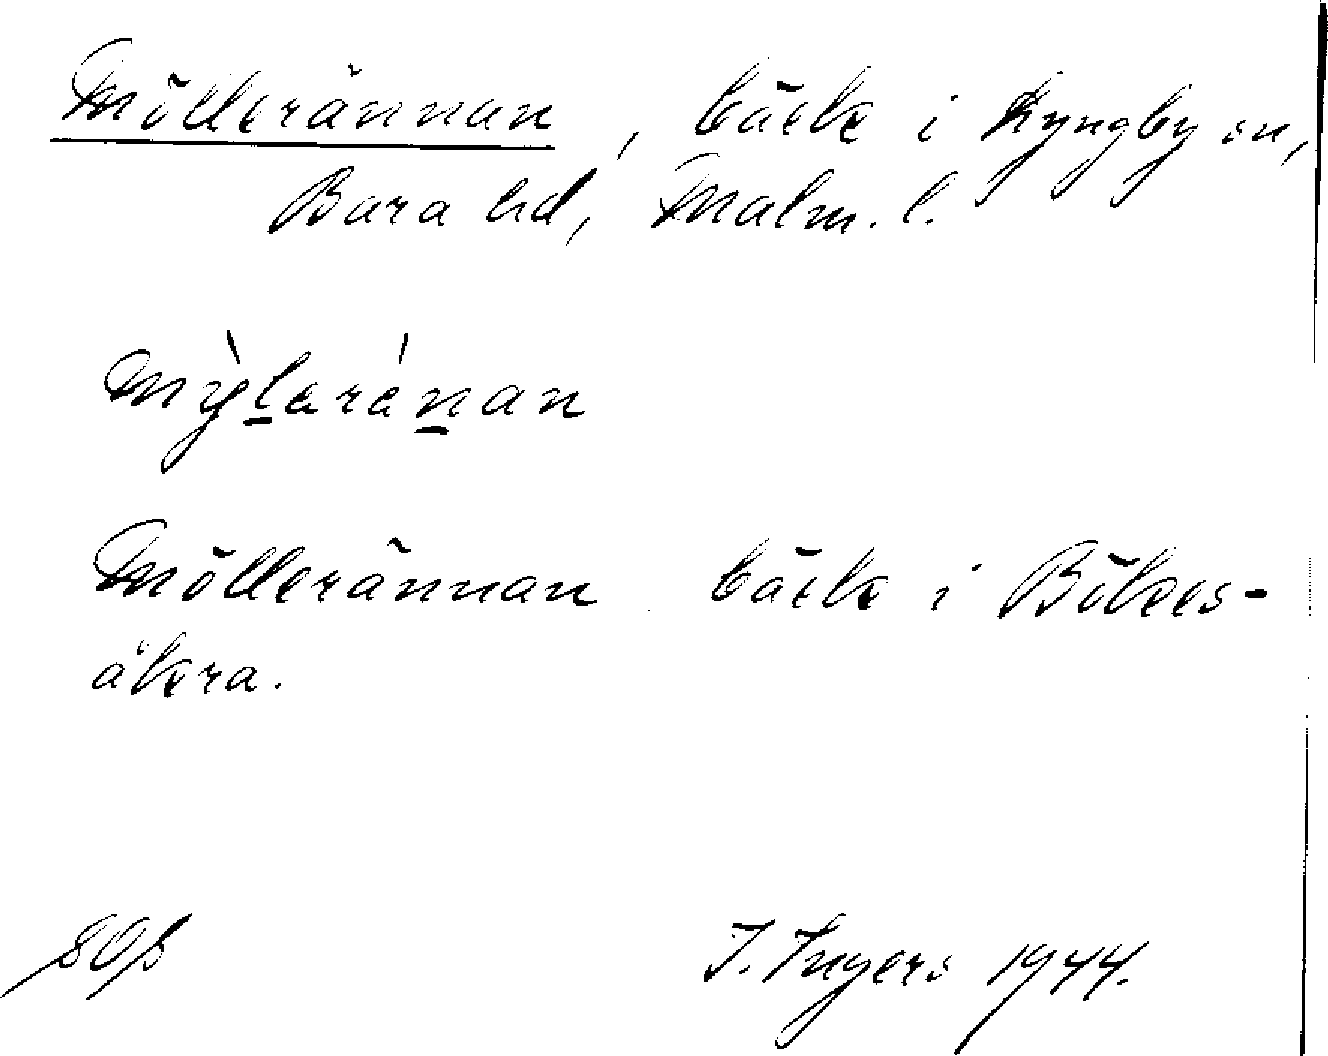 Möllerännan, bäck i Lyngby sn,
Bara hd, Malm. l.
mỳl̠aránan
Möllerännan bäck i Bökes-
åkra.
I. Ingers 1944.